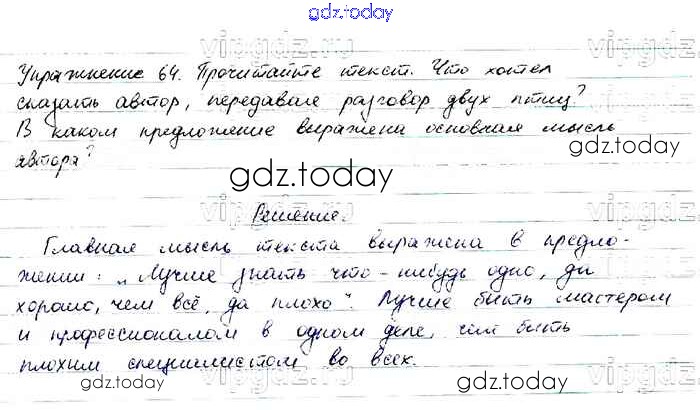 gdz.today
vipgdz.ru
Упражнение 64. Прочитайте текст. Что хотел
сказать автор, передавая разговор двух птиц?
В каком предложение выражена основная мысль
автора?
gdz.today
gdz.today
vipgdz.ru
Решение.
Главная мысль текста выражена в предло-
жении: „Лучше знать что-нибудь одно, да
хорошо, чем всё, да плохо". Лучше быть мастером
и профессионалом в одном деле, чем быть
плохим специалистом во всех.
vipgdz.ru
gdz.today
gdz.today